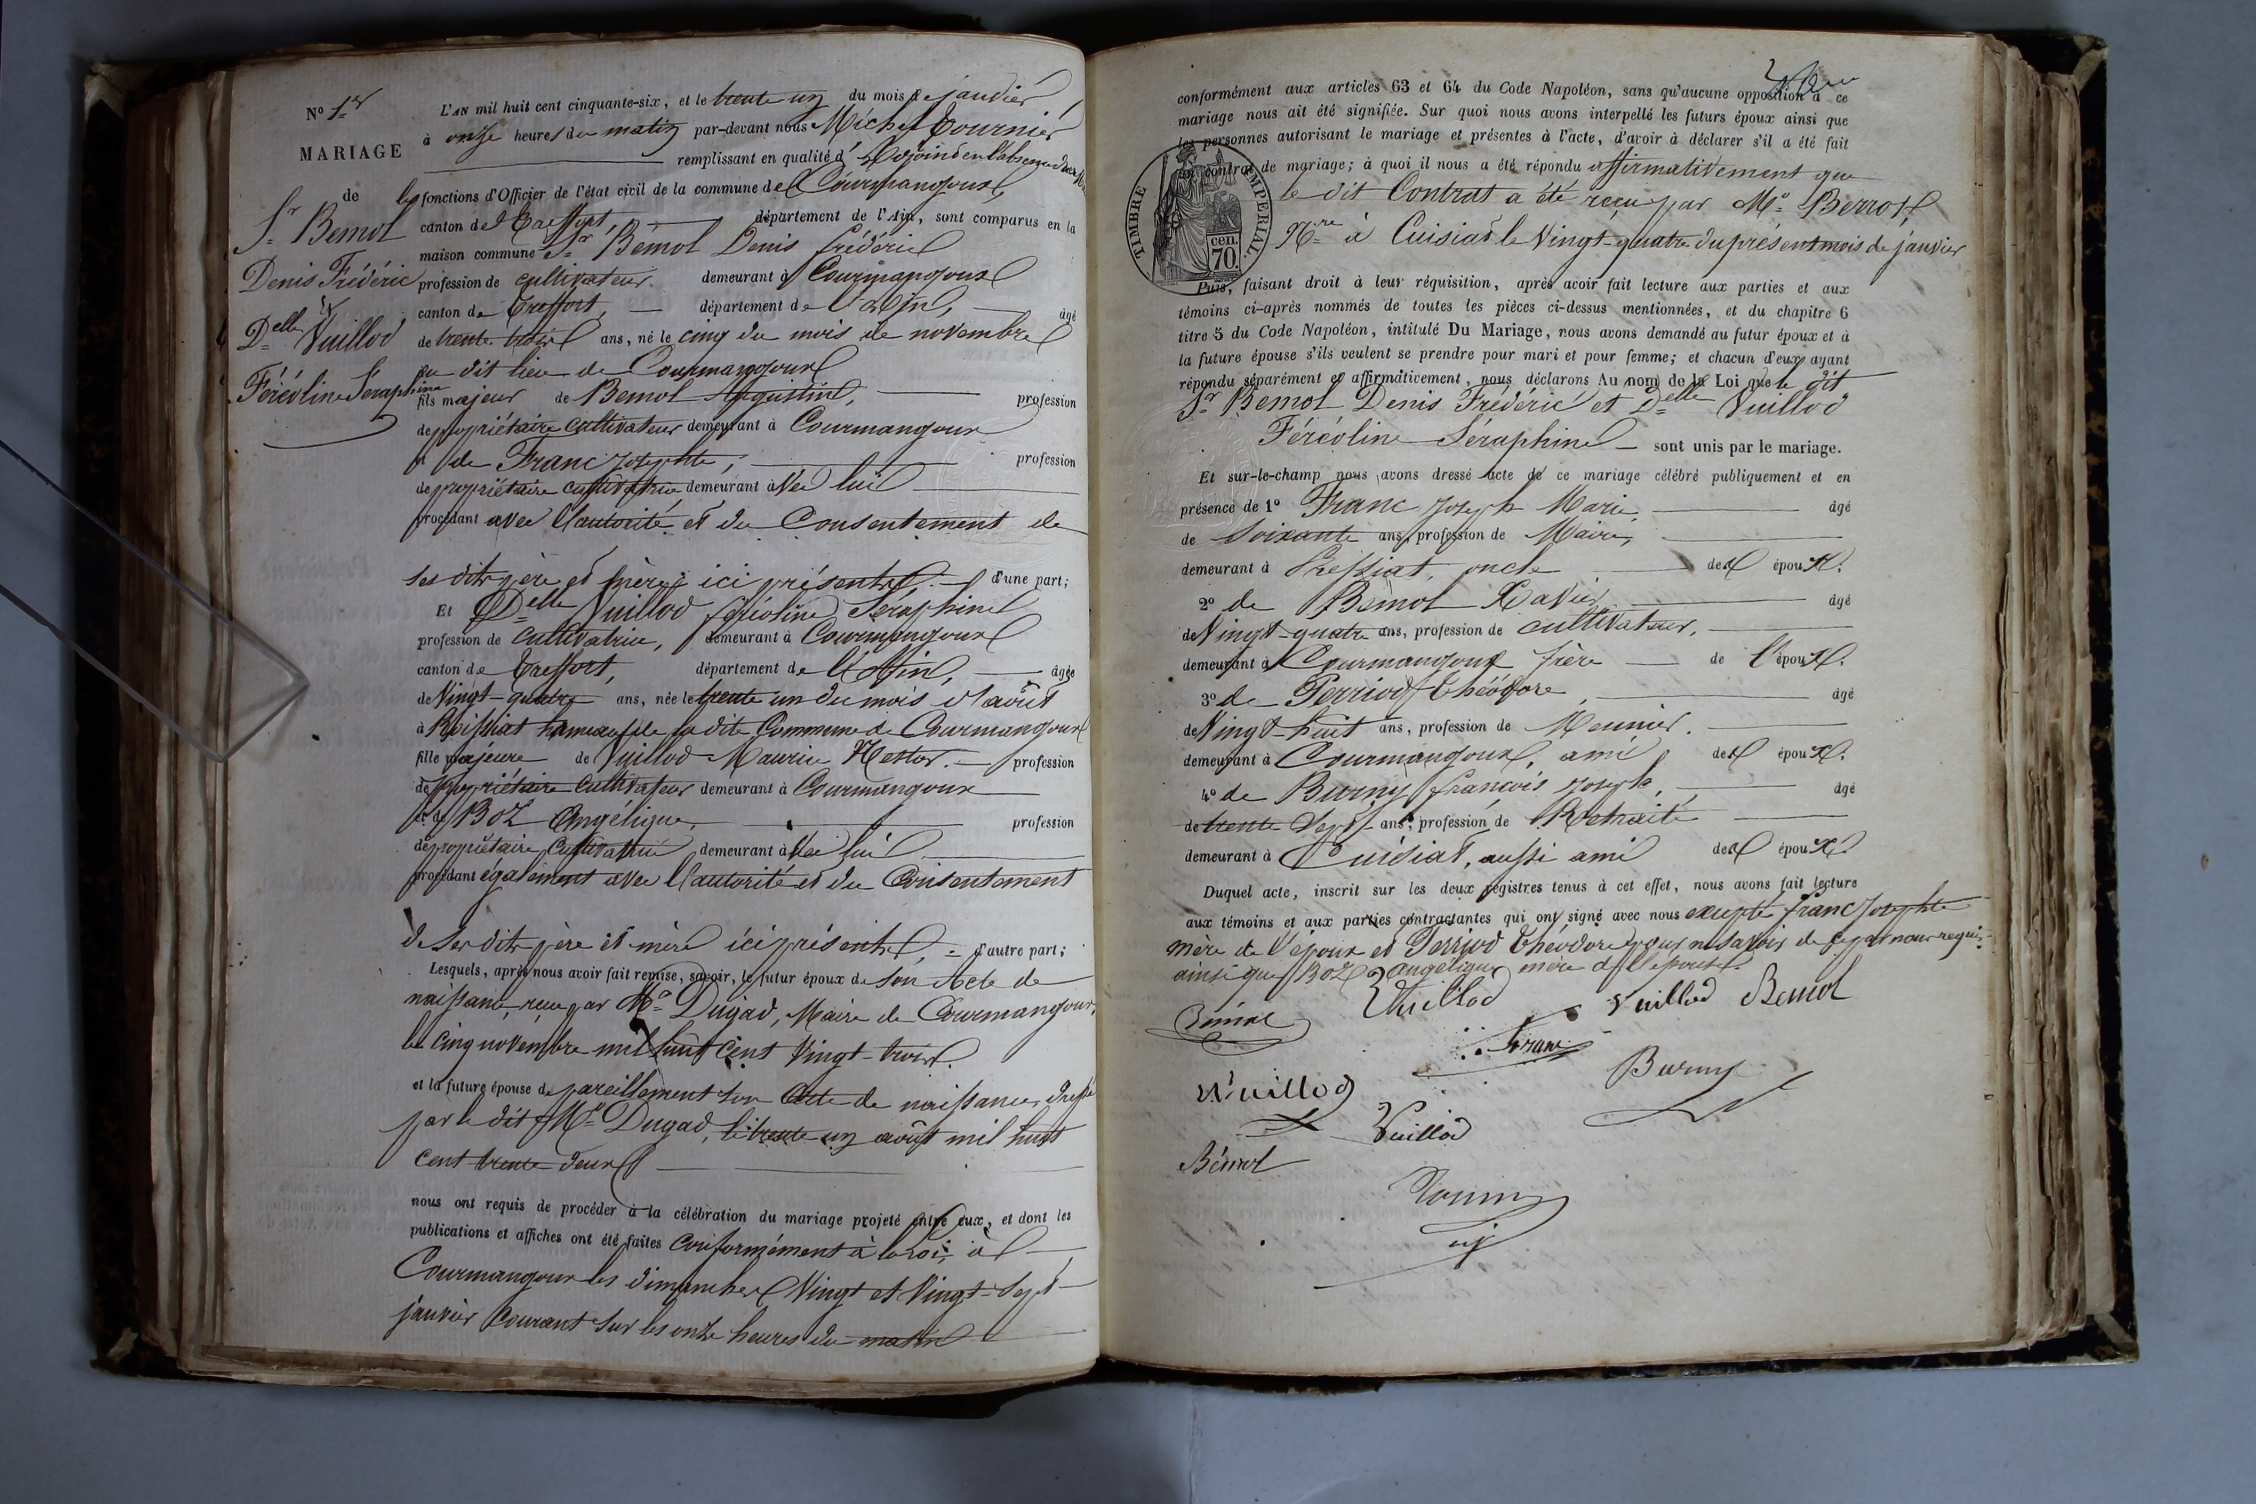 N° 1er
MARIAGE
de
Sr Bémol
Denis Frédéric
&
Delle Vuillod
Féréoline Séraphine
L'AN mil huit cent cinquante-six, et le trente un du mois de janvier
à onze heures du matin par-devant nous Michel Tournier
remplissant en qualité d'adjoint en l'absence du
les fonctions d'Officier de l'état civil de la commune de Courmangoux
canton de Treffort, département de l'Ain, sont comparus en la
maison commune Sr Bémol Denis frédéric
profession de cultivateur. demeurant à Courmangoux
canton de Treffort, département de l'Ain, âgé
de trente trois ans, né le cinq du mois de novembre
au dit lieu de Courmangoux
fils majeur de Bemol Augustin, profession
de propriétaire cultivateur demeurant à Courmangoux
et de Franc Josephte, profession
de propriétaire cultivatrice demeurant avec lui
procédant avec l'autorité et du Consentement de
ses dits père et mère ici présents. d'une part;
Et Delle Vuillod féréoline Séraphine
profession de cultivatrice, demeurant à Courmangoux
canton de Treffort, département de l'Ain, âgée
de Vingt-quatre ans, née le trente un du mois d'août
à Roissiat hameau de la dite Commune de Courmangoux
fille majeure de Vuillod Maurice Nestor. profession
de propriétaire cultivateur demeurant à Courmangoux
et de Boz Angélique, profession
de propriétaire cultivatrice demeurant avec lui
procédant également avec l'autorité et du Consentement
de ses dits père et mère ici présents, d'autre part;
Lesquels, après nous avoir fait remise, savoir, le futur époux de son Acte de
naissance, reçu par Mr Dugad, Maire de Courmangoux,
le cinq novembre mil huit cent vingt-trois.
et la future épouse de pareillement son Acte de naissance, dressé
par le dit Mr Dugad, le trente un août mil huit
cent trente deux
nous ont requis de procéder à la célébration du mariage projeté entre eux, et dont les
publications et affiches ont été faites conformément à la Loi, à
Courmangoux les dimanches Vingt et Vingt-Sept
janvier Courant sur les onze heures du matin
conformément aux articles 63 et 64 du Code Napoléon, sans qu'aucune opposition à ce
mariage nous ait été signifiée. Sur quoi nous avons interpellé les futurs époux ainsi que
les personnes autorisant le mariage et présentes à l'acte, d'avoir à déclarer s'il a été fait
un contrat de mariage; à quoi il nous a été répondu affirmativement que
le dit Contrat a été reçu par Me Berrod,
Nre à Cuisiat le Vingt-quatre du présent mois de janvier
TIMBRE IMPÉRIAL
70 cen.
Puis, faisant droit à leur réquisition, après avoir fait lecture aux parties et aux
témoins ci-après nommés de toutes les pièces ci-dessus mentionnées, et du chapitre 6
titre 5 du Code Napoléon, intitulé Du Mariage, nous avons demandé au futur époux et à
la future épouse s'ils veulent se prendre pour mari et pour femme; et chacun d'eux ayant
répondu séparément et affirmativement, nous déclarons Au nom de la Loi que le dit
Sr Bemol Denis Frédéric et Delle Vuillod
Féréoline Séraphine sont unis par le mariage.
Et sur-le-champ nous avons dressé acte de ce mariage célébré publiquement et en
présence de 1° Franc Joseph Marie, âgé
de Soixante ans, profession de Maire,
demeurant à Pressiat, oncle des époux.
2° de Bémol Xavier, âgé
de Vingt-quatre ans, profession de cultivateur.
demeurant à Courmangoux frère de l'époux.
3° de Perriod Théodore, âgé
de Vingt-huit ans, profession de Meunier.
demeurant à Courmangoux, ami des époux.
4° de Burny françois Joseph, âgé
de trente Sept ans, profession de Retraité
demeurant à Cuisiat, aussi ami des époux.
Duquel acte, inscrit sur les deux registres tenus à cet effet, nous avons fait lecture
aux témoins et aux parties contractantes qui ont signé avec nous excepté franc Josephte
mère de l'époux et Perriod Théodore pour ne savoir de ce par nous requis
ainsi que Boz Angélique mère de l'épouse.
Bémol Vuillod Vuillod Bemol
Franc
Burny
Vuillod
Vuillod
Bémol